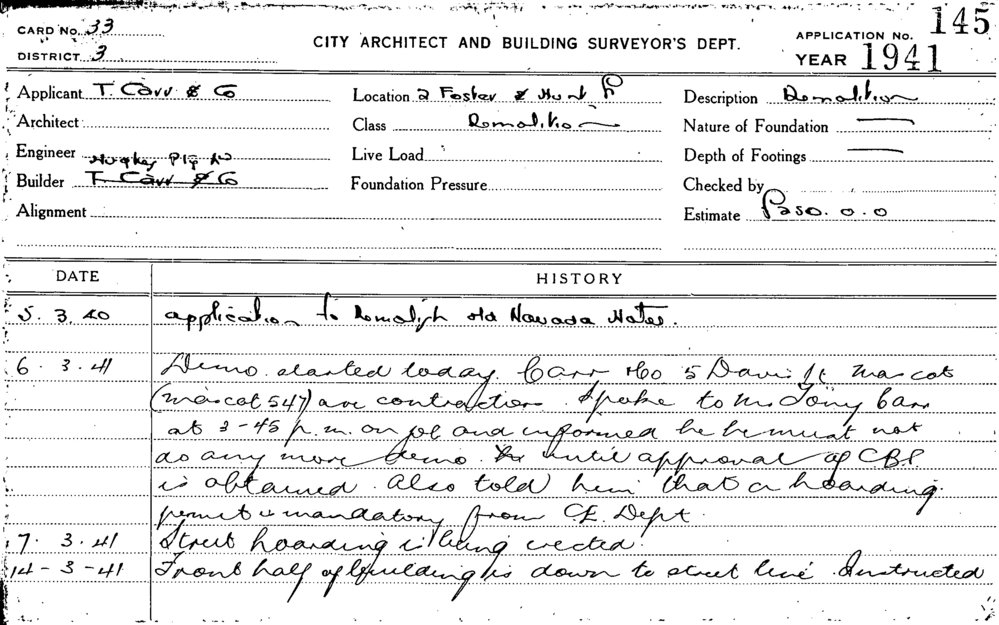 CARD No. 33
DISTRICT 3
CITY ARCHITECT AND BUILDING SURVEYOR'S DEPT.
APPLICATION No. 145
YEAR 1941
Applicant T. Carr & Co
Location 2 Foster & Hunt
Description Demolition
Architect
Class Demolition
Nature of Foundation —
Engineer
Live Load
Depth of Footings —
Hughes Pty
Builder T. Carr & Co
Foundation Pressure
Checked by
Alignment
Estimate £250. 0. 0
DATE
HISTORY
5. 3. 40 application to Demolish old Hotel.
6. 3. 41 Demo. started today. Carr & Co 5 Davis St Mascot
(Mascot 547) are contractors. Spoke to Mr Tony Carr
at 3-45 p.m. on job and informed he must not
do any more demo. until approval of
is obtained. Also told him that a hoarding
permit is mandatory from C.E. Dept.
7. 3. 41 Street hoarding is being erected.
14-3-41 Front half of building is down to street line. Instructed